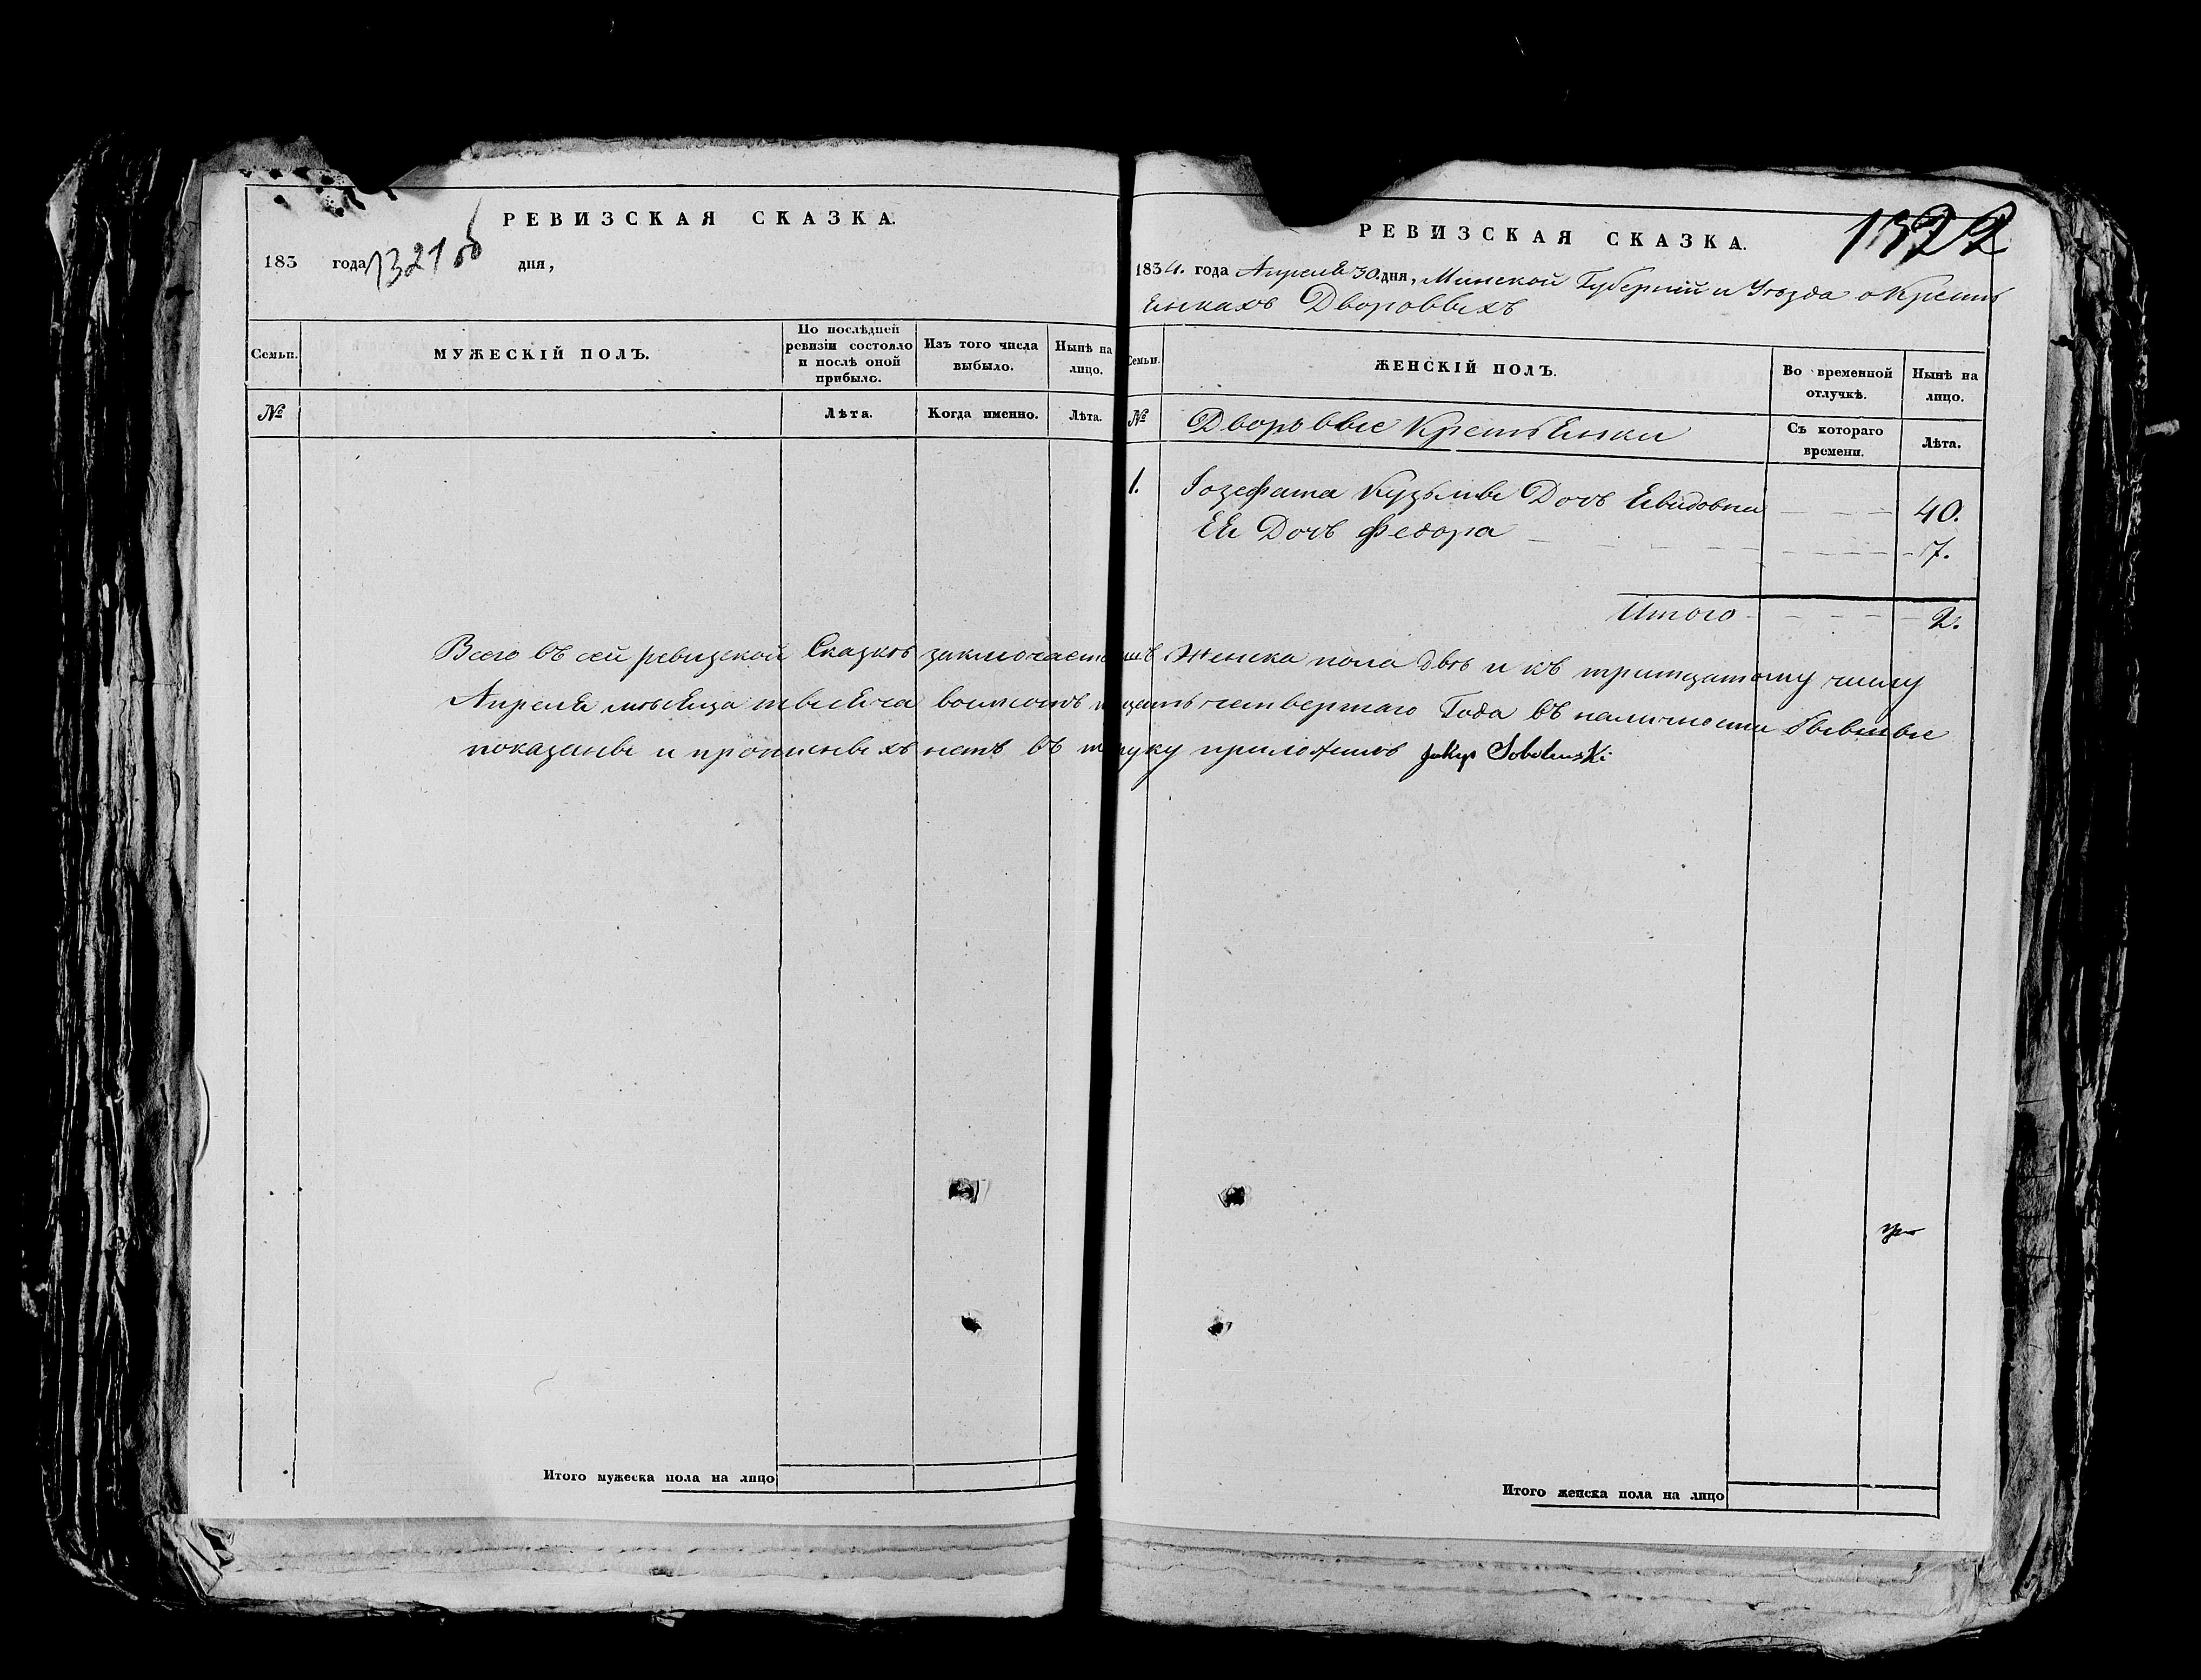 РЕВИЗСКАЯ СКАЗКА.
183 года 1321 об дня,
Семьи.
МУЖЕСКІЙ ПОЛЪ.
По послѣдней ревизіи состояло и послѣ оной прибыло.
Изъ того числа выбыло.
Нынѣ на лицо.
№
Лѣта.
Когда именно.
Лѣта.
Итого мужеска пола на лицо
1322
РЕВИЗСКАЯ СКАЗКА.
1834. года Апреля 30. дня, Минской Губерніи и Уѣзда о Крестъ
Енкахъ Дворовыхъ
Семьи.
ЖЕНСКІЙ ПОЛЪ.
Во временной отлучкѣ.
Нынѣ на лицо.
№
Дворовые Крестьянки
Съ котораго времени.
Лѣта.
1. Іозефата Кузьмы Дочъ 40.
Ея Дочъ Федора 7.
Итого 2.
Всего въ сей ревизской Сказкѣ заключается Женска пола двѣ и къ тритцатому числу
Апреля мѣсяца тысяча четвертаго Года въ наличности бывшые
показаны и въ руку приложилъ Sobolewski
Итого женска пола на лицо